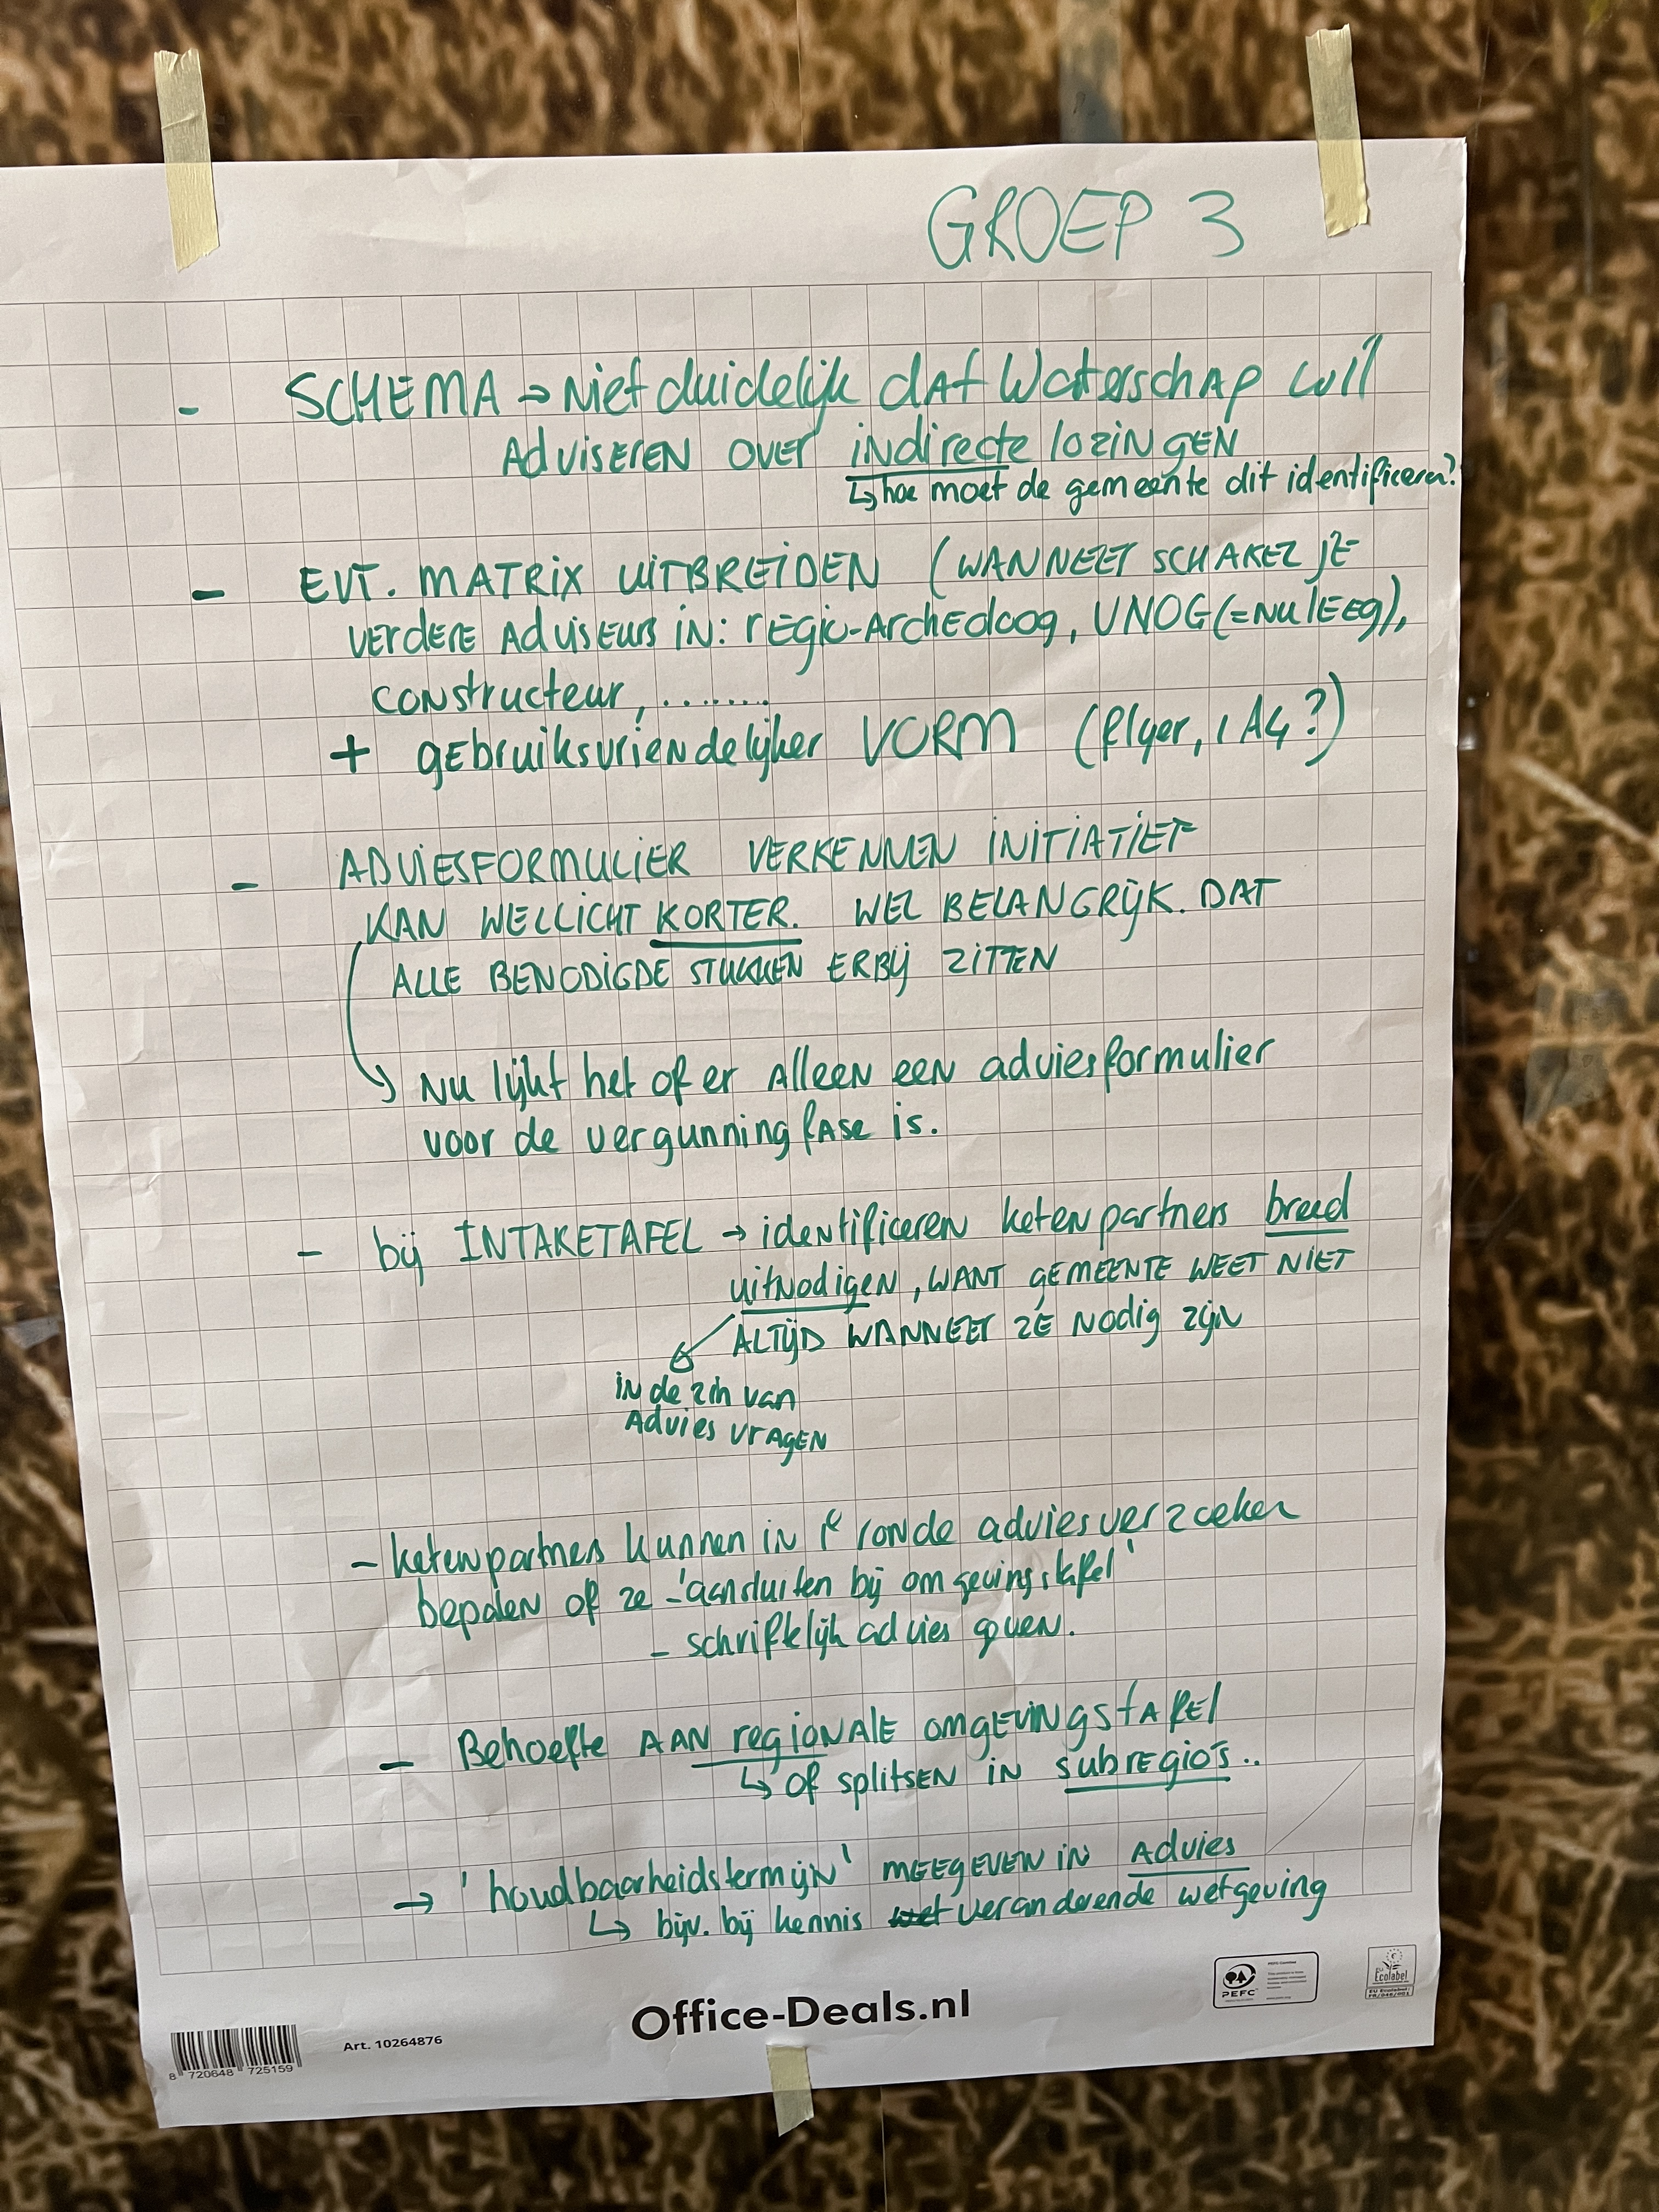 GROEP 3
- SCHEMA → Niet duidelijk dat Waterschap wil
Adviseren over indirecte lozingen
↳ hoe moet de gemeente dit identificeren?
- EVT. MATRIX UITBREIDEN (WANNEER SCHAKEL JE
verdere Adviseurs in: regio-Archeoloog, VNOG (= nu leeg),
constructeur, ........
+ gebruiksvriendelijker VORM (flyer, 1 A4?)
- ADVIESFORMULIER VERKENNEN INITIATIEF
KAN WELLICHT KORTER. WEL BELANGRIJK DAT
ALLE BENODIGDE STUKKEN ERBIJ ZITTEN
↳ Nu lijkt het of er Alleen een adviesformulier
voor de vergunningfase is.
- bij INTAKETAFEL → identificeren ketenpartners breed
uitnodigen, WANT GEMEENTE WEET NIET
ALTIJD WANNEER ZE Nodig zijn
in de zin van
Advies vragen
- ketenpartners kunnen in 1e ronde adviesverzoeken
bepalen of ze - 'aansluiten bij omgevingstafel'
- schriftelijk advies geven.
- Behoefte AAN regionale omgevingstafel
↳ of splitsen in subregio's..
→ 'houdbaarheidstermijn' meegeven in Advies
↳ bijv. bij kennis wet veranderende wetgeving
PEFC
EU Ecolabel
Office-Deals.nl
Art. 10264876
8 720648 725159